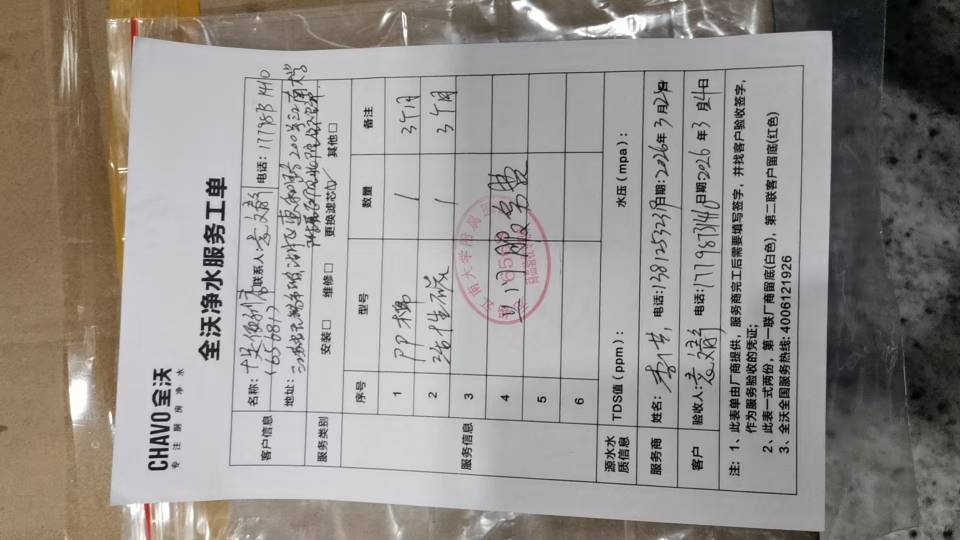 CHAVO全沃
专注厨房净水
全沃净水服务工单
客户信息
名称：十足便利店 联系人： 电话：17798731410
(65681)
地址：江苏省无锡市滨湖区 200号江南大学
服务类别 安装□ 维修□ 更换滤芯☑ 其他□
服务信息
序号 型号 数量 备注
1 PP棉 1 3个月
2 活性碳 1 3个月
3
4 上门服务费
5
6
江南大学附属
源水水质信息 TDS值(ppm)： 水压(mpa)：
服务商 姓名： 电话：13812532319 日期：2026年3月24日
客户 验收人： 电话：17798731410 日期：2026年3月4日
注：1、此表单由厂商提供，服务商完工后需要填写签字，并找客户验收签字，
作为服务验收的凭证；
2、此表一式两份，第一联厂商留底(白色)，第二联客户留底(红色)
3、全沃全国服务热线：4006121926